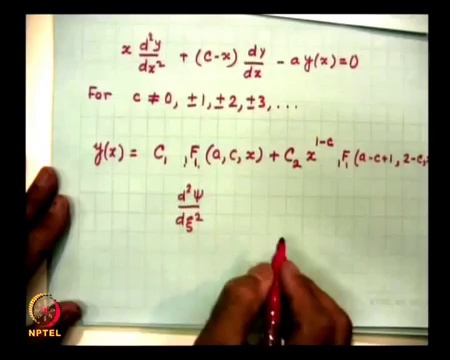 x d²y/dx² + (c-x) dy/dx - a y(x) = 0
For c ≠ 0, ±1, ±2, ±3, ...
y(x) = C₁ ₁F₁(a, c, x) + C₂ x^(1-c) ₁F₁(a-c+1, 2-c,
d²Ψ/dξ²
NPTEL